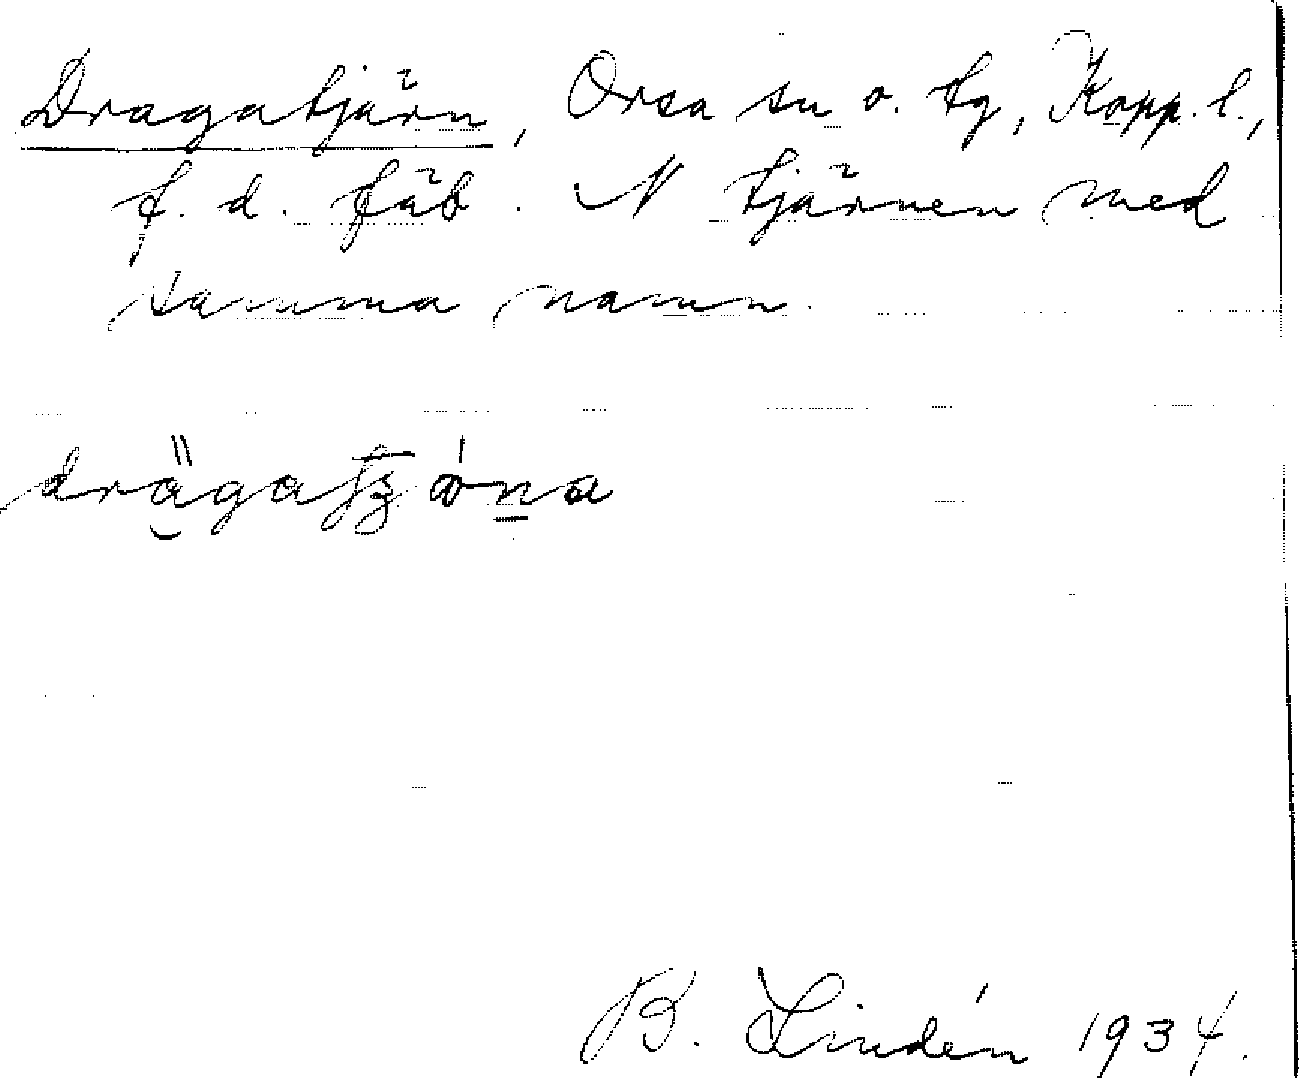 Dragatjärn, Orsa sn o. tg, Kopp. l.,
f. d. fäb. N tjärnen med
samma namn.
B. Lindén 1934.